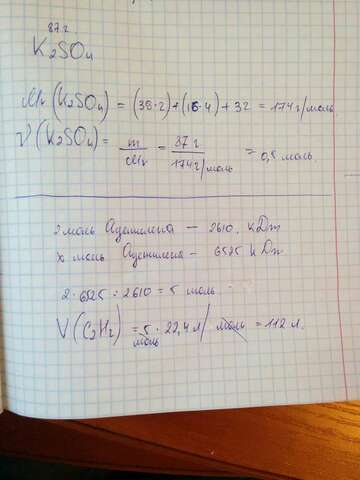 87 г
K₂SO₄
Mr (K₂SO₄) = (39·2) + (16·4) + 32 = 174 г/моль
ν (K₂SO₄) = m/Mr = 87 г/174 г/моль = 0,5 моль
2 моль Ацетилена — 2610 кДж
x моль Ацетилена – 6525 кДж
2 · 6525 : 2610 = 5 моль
V (C₂H₂) = 5 моль · 22,4 л/моль = 112 л.